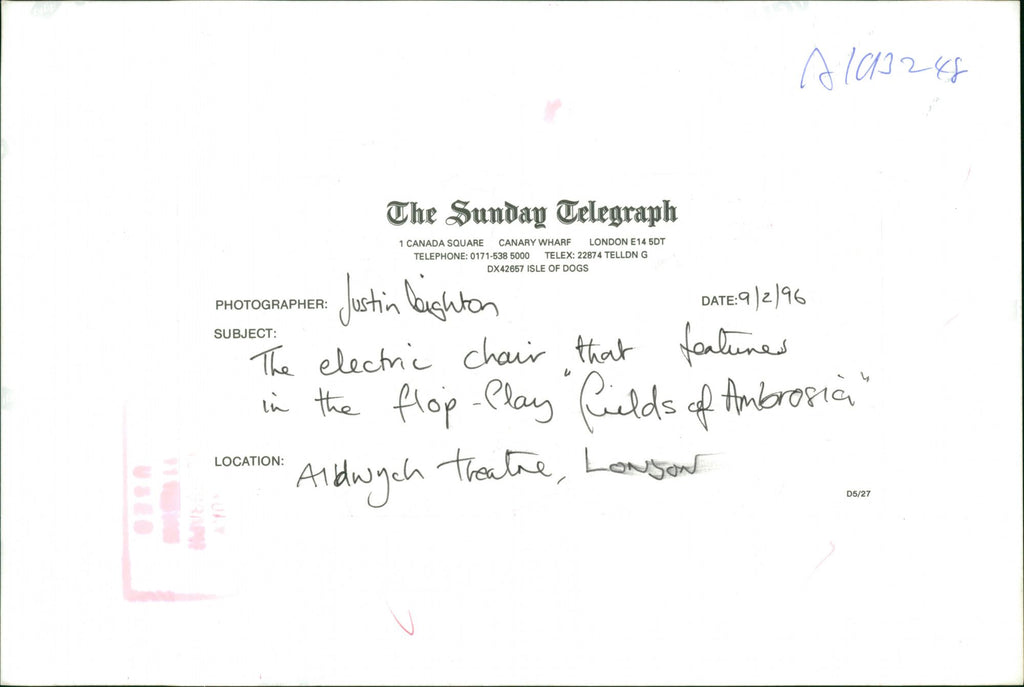 A1093248
The Sunday Telegraph
1 CANADA SQUARE CANARY WHARF LONDON E14 5DT
TELEPHONE: 0171-538 5000 TELEX: 22874 TELLDN G
DX42657 ISLE OF DOGS
PHOTOGRAPHER: Justin Leighton DATE: 9/2/96
SUBJECT:
The electric chair that features
in the flop-Play "Fields of Ambrosia"
LOCATION: Aldwych theatre, LONDON
D5/27